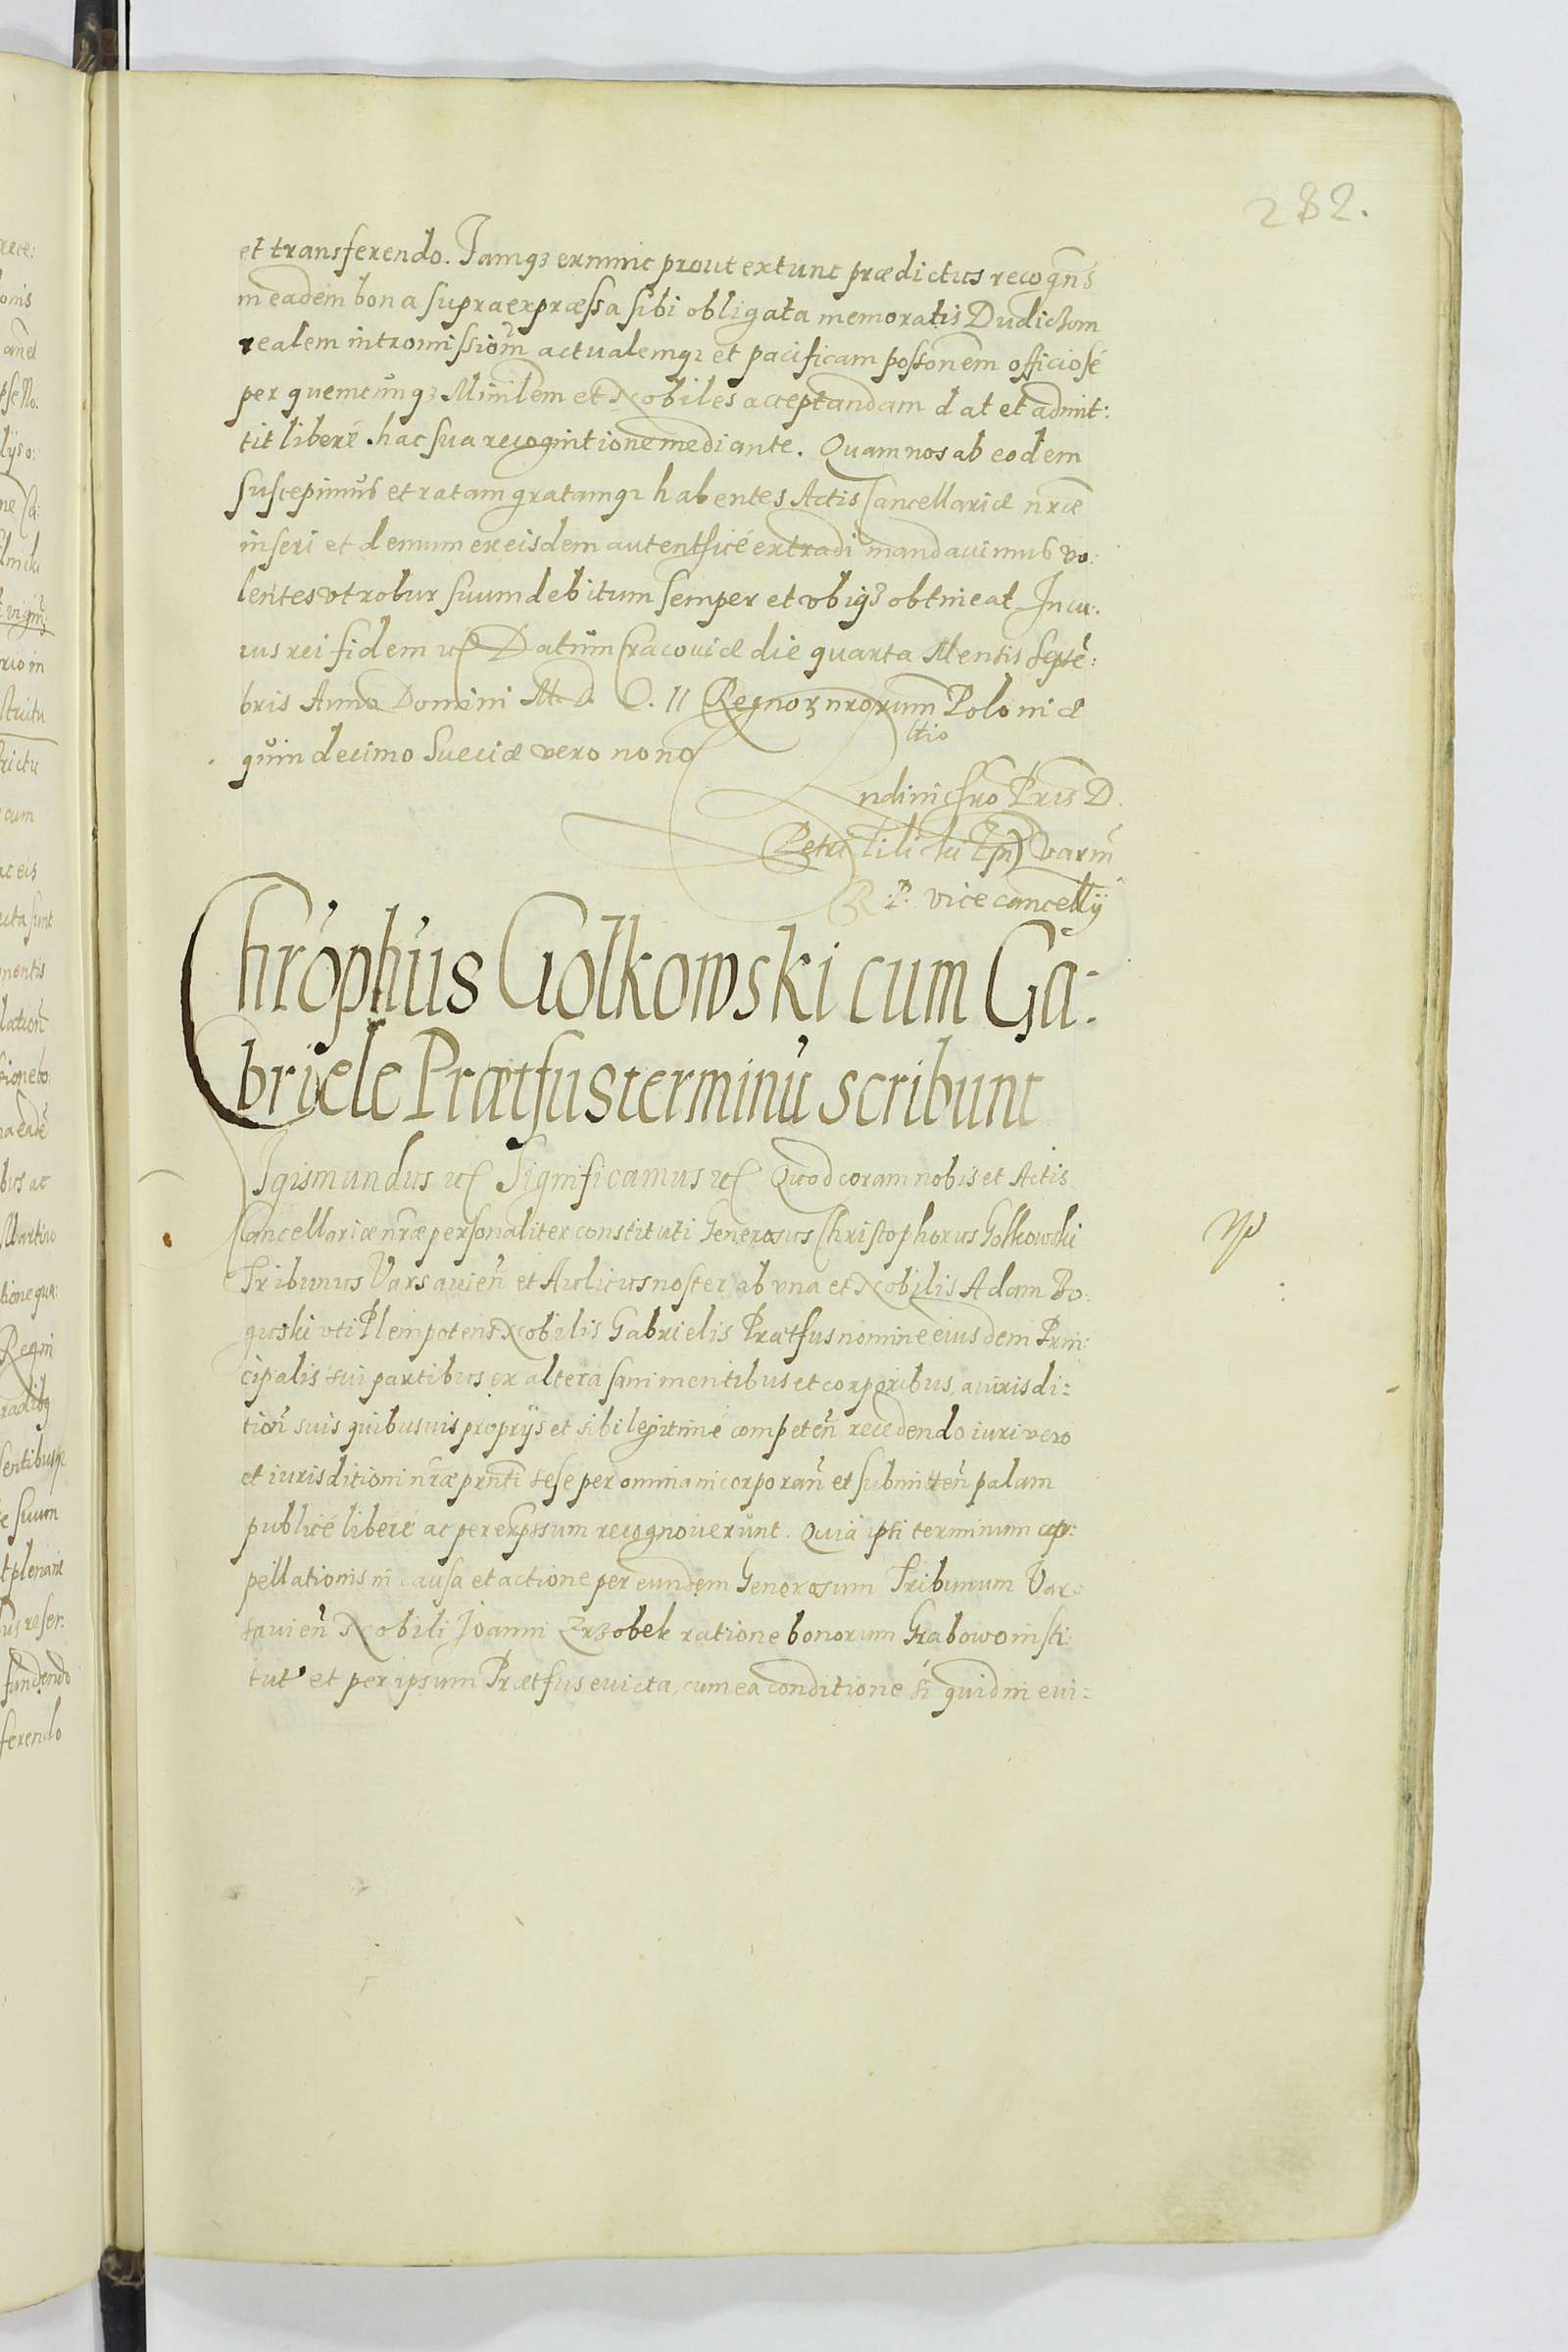 282.
et transferendo. Jamq3 exnunc prout extunc prædictus recogn̄s
in eadem bona supraexpræssa sibi obligata memoratis Dudicbom
realem intromissiōm actualemq3 et pacificam possonem officiosé
per quemcūnq3 Minilem et Nobiles acceptandam dat et admit:
tit liberé hac sua recognitione mediante. Quam nos ab eodem
suscepimus et ratam gratamq3 habentes Actis Cancellariæ nrǣ
inseri et demum ex eisdem autenthicé extradi mandauimus vo:
lentes vt robur suum debitum semper et vbiq3 obtineat. In cu:
ius rei fidem etc Datum Cracouiæ die quarta Mensis Septē:
bris Anno Domini M. D. C. II Regnor3 nrorum Poloniæ
quin decimo Sueciæ vero nono
ltio
ndini Chro Pris D.
Petri Tilicki Epi Varm̄
R. P. vicecancellÿ
Chrophus Golkowski cum Ga:
briele Prætfus terminū scribunt
Igismundus etc Significamus etc Quod coram nobis et Actis
Cancellariæ nræ personaliter constituti Generosus Christophorus Golkowski
Tribunus Varsauien̄ et Aulicus noster ab vna et Nobilis Adam Bo:
guski vti Plenipotens Nobilis Gabrielis Prætfus nomine eiusdem Prin:
cipalis sui partibus ex altera sani mentibus et corporibus, a iurisdi:
tion̄ suis quibusuis proprÿs et sibi legitime competen̄ recedendo iuri vero
et iurisditioni nræ prnti sese per omnia incorporan̄ et submitten̄ palam
publicé liberé ac per expssum recognouerunt. Quia ipsi terminum ap:
pellationis in causa et actione per eundem Generosum Tribunum Var:
sauien̄ Nobili Joanni Zrzobek ratione bonorum Grabowo insti:
tut et per ipsum Prætfus euicta, cum ea conditione si quid in eui: